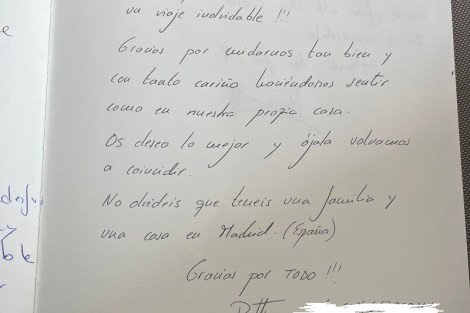 e
un viaje inolvidable !!!
Gracias por cuidarnos tan bien y
con tanto cariño haciéndonos sentir
como en nuestra propia casa.
Os deseo lo mejor y ójala volvamos
a coincidir.
No olvideis que teneis una familia y
una casa en Madrid. (España)
Gracias por TODO !!!